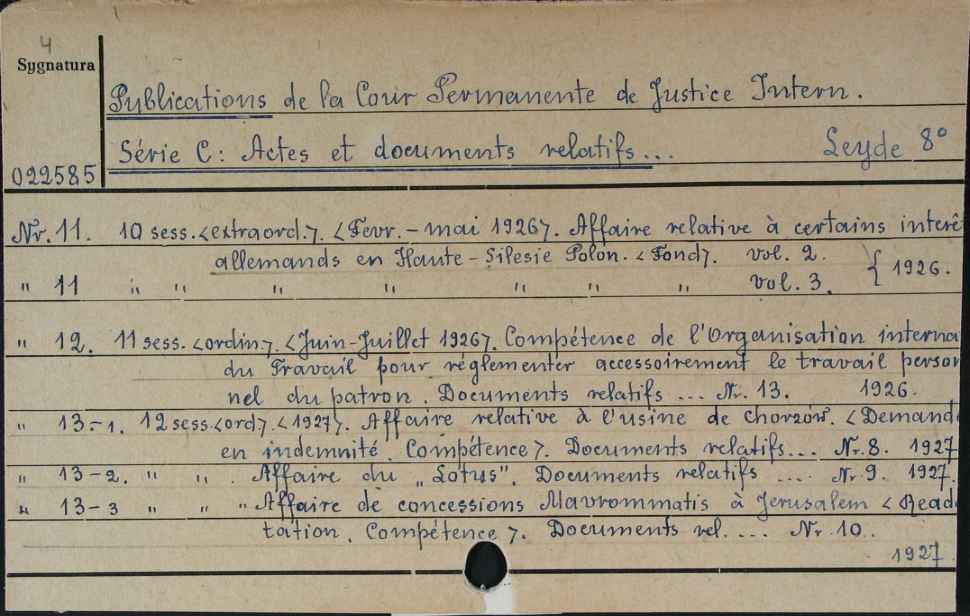 4
Sygnatura
Publications de la Cour Permanente de Justice Intern.
Série C: Actes et documents relatifs... Leyde 8°
022585
Nr. 11. 10 sess. <extraord.>. <Fevr. - mai 1926>. Affaire relative à certains interê
allemands en Haute-Silesie Polon. <Fond>. vol. 2.
" 11 " " " " " " " vol. 3. { 1926.
" 12. 11 sess. <ordin.>. <Juin-Juillet 1926>. Compétence de l'Organisation interna
du Travail pour réglementer accessoirement le travail person
nel du patron. Documents relatifs ... Nr. 13. 1926.
" 13-1. 12 sess. <ord>. <1927>. Affaire relative à l'usine de Chorzów. <Demand
en indemnité. Compétence>. Documents relatifs... Nr. 8. 1927
" 13-2. " " . Affaire du „Lotus". Documents relatifs ... Nr. 9. 1927.
" 13-3 " " " Affaire de concessions Mavrommatis à Jerusalem <Read
tation. Compétence>. Documents rel. ... Nr. 10.
1927